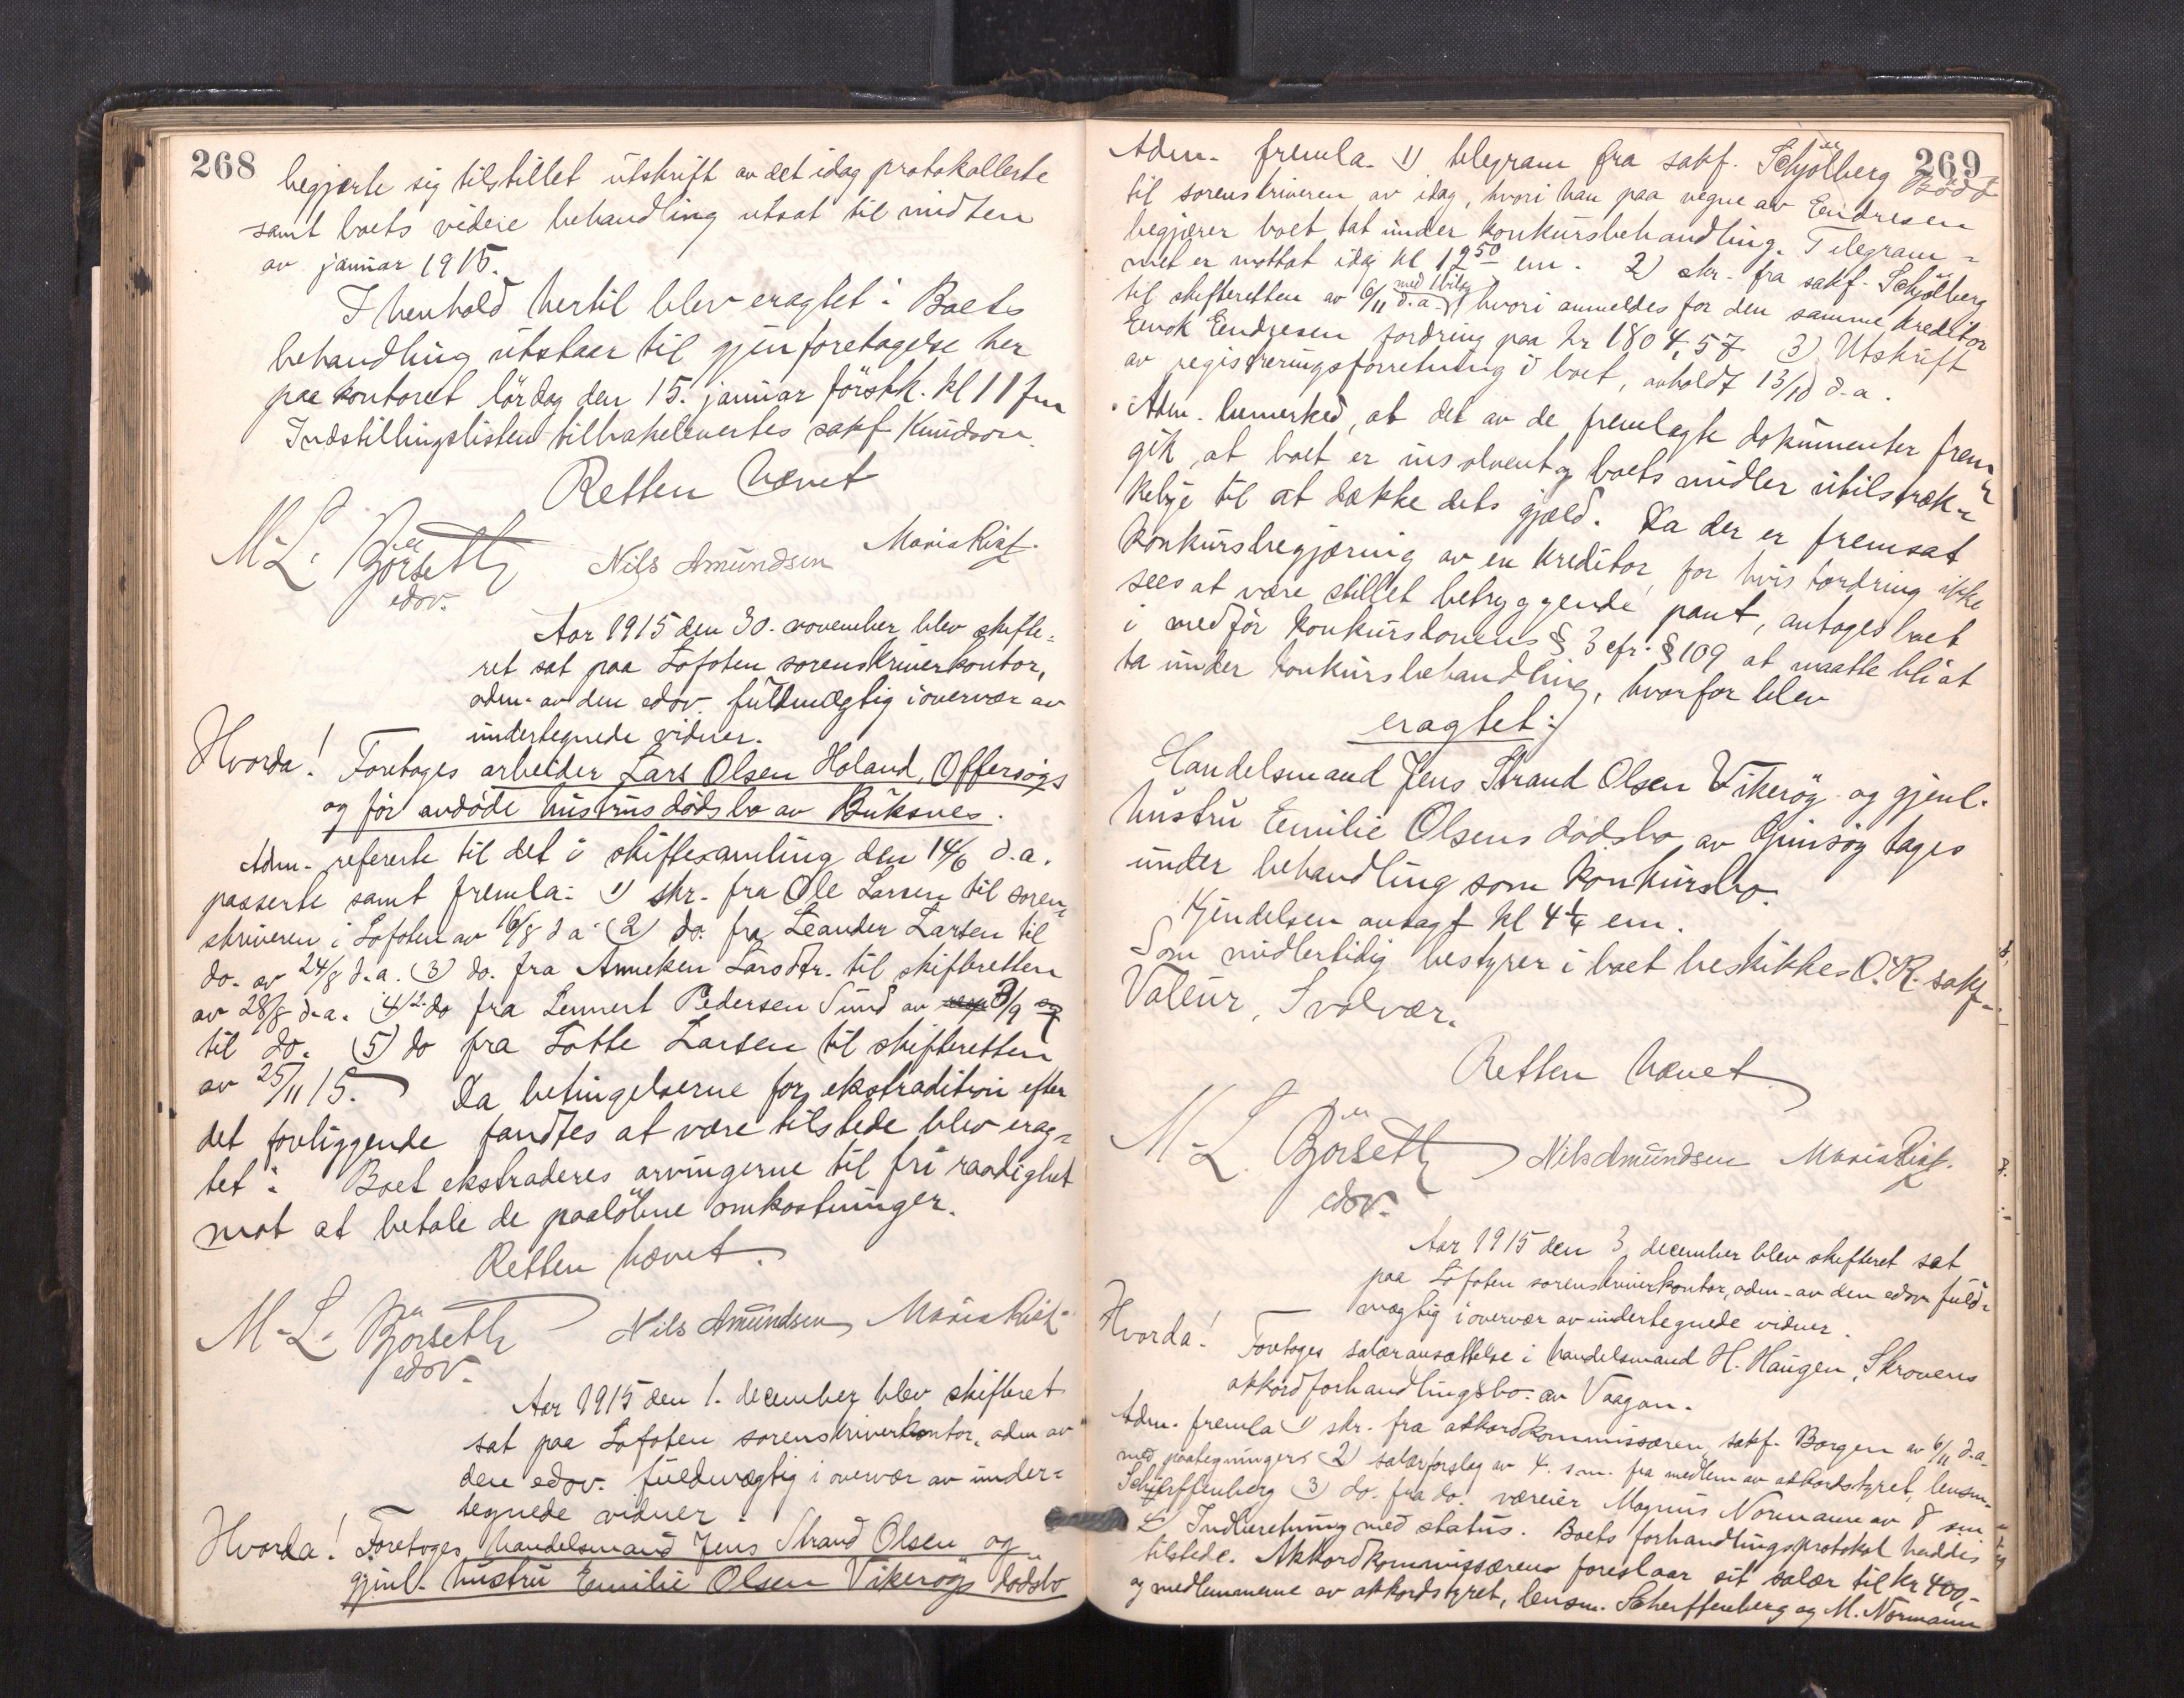 268
begjærte sig tilstillet utskrift av det idag protokollerte
samt boets videre behandling utsat til midten
av januar 1915.
I henhold hertil blev eragtet: Boets
behandling utstaar til gjenforetagelse her
paa kontoret lørdag den 15. januar förstk. kl 11 fm
Indstillingslisten tilbakelevertes sakf Knudson.
Retten hævet
M. L. Börseth
edsv.
Nils Amundsen
Maria Riaf.
Aar 1915 den 30. november blev skifte-
ret sat paa Lofoten sorenskriverkontor,
adm. av den edsv. fuldmægtig i overvær av
undertegnede vidner.
Hvorda! Foretoges arbeider Lars Olsen Holand, Offersøys
og før avdøde hustrus dødsbo av Buksnes.
Adm. refererte til det i skiftesamling den 14/6 d.a.
passerte samt fremla: 1) skr. fra Ole Larsen til soren-
skriveren i Lofoten av 16/8 d a 2) do. fra Leander Larsen til
do. av 24/8 d.a. 3) do. fra Anneken Larsdtr. til skifteretten
av 28/8 d.a. 4) do fra Lennert Pedersen Sund av 3/9
til do. 5) do fra Lotte Larsen til skifteretten
av 25/11 15. Da betingelserne for ekstradition efter
det forliggende fandtes at være tilstede blev erag-
tet: Boet ekstraderes arvingerne til fri raadighet
mot at betale de paaløbne omkostninger.
Retten hævet.
M. L. Börseth
edsv.
Nils Amundsen
Maria Riaf.
Aar 1915 den 1. december blev skifteret
sat paa Lofoten sorenskriverkontor, adm av
den edsv. fuldmægtig i overvær av under-
tegnede vidner.
Hvorda! Foretoges handelsmand Jens Strand Olsen og
gjenl. hustru Emilie Olsen Vikerøys dødsbo
269
Adm. fremla. 1) telegram fra sakf. Schjölberg Bodö
til sorenskriveren av idag, hvori han paa vegne av Eendresen
begjærer boet tat under konkursbehandling. Telegram-
met er mottat idag kl 12 50 em. 2) skr. fra sakf. Schjölberg
til skifteretten av 6/11 d.a. med 1 bilag hvori anmeldes for den samme kreditor
Enok Eendresen fordring paa kr 1804,57 3) Utskrift
av registreringsforretning i boet, avholdt 13/10 d.a.
Adm. bemerked, at det av de fremlagte dokumenter frem-
gik at boet er insolvent og boets midler utilstræk-
kelige til at dække dets gjæld. Da der er fremsat
konkursbegjæring av en kreditor, for hvis fordring ikke
sees at være stillet betryggende pant, antages boet
i medför konkurslovens § 3 cfr. § 109 at maatte bli at
ta under konkursbehandling, hvorfor blev
eragtet:
Handelsmand Jens Strand Olsen Vikerøy og gjenl.
hustru Emilie Olsens dødsbo av Gimsøy tages
under behandling som konkursbo.
Kjendelsen avsagt kl 4 1/4 em.
Som midlertidig bestyrer i boet beskikkes O.R. sakf.
Valeur, Svolvær.
Retten hævet.
M. L. Börseth
edsv.
Nils Amundsen
Maria Riaf.
Aar 1915 den 3. december blev skifteret sat
paa Lofoten sorenskriverkontor, adm. av den edsv. fuld-
mægtig i overvær av undertegnede vidner.
Hvorda! Foretoges salæransættelse i handelsmand H. Haugen, Skrovens
akkordforhandlingsbo. av Vaagan.
Adm. fremla 1) skr. fra akkordkommissæren, sakf. Borgen av 6/11 d.a.
med paategninger 2) salærforslag av 4. s.m. fra medlem av akkordstyret, lensm.
Scherffenberg 3) do. fra do. væreier Magnus Normann av 8 sm
4) Indberetning med status. Boets forhandlingsprotokol haddes
tilstede. Akkordkommissæren foreslaar sit salær til kr 400,-
og medlemmerne av akkordstyret, lensm. Scherffenberg og M. Normann